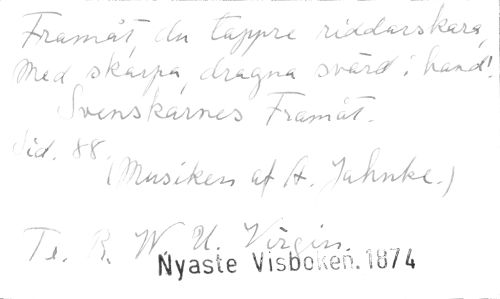 Framåt, du tappre riddarskara,
Med skarpa, dragna svärd i hand!
Svenskarnes Framåt.
Sid. 88.
(Musiken af A. Jahnke.)
Te. R. W. U. Virgin.
Nyaste Visboken. 1874